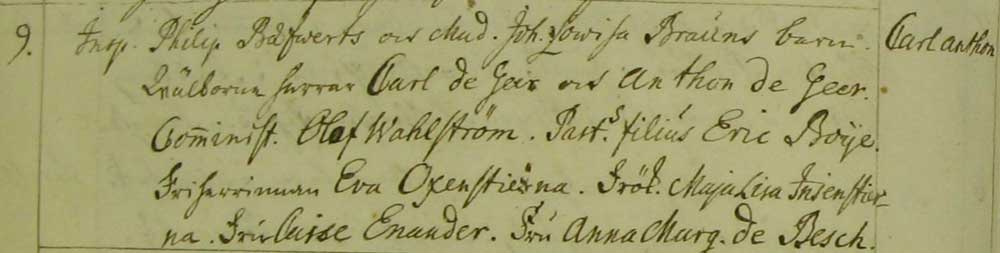 9. Insp. Philip Bæfwerts och Mad. Joh. Lowisa Brauns barn. Carl anthon
Wälborne herrar Carl de Geer och Anthon de Geer.
Com̄inist. Olof Wahlström. Past:s filius Eric Boije.
Friherrinnan Eva Oxenstierna. Frök. Maja Lisa Insenstier-
na. Fru Caisse Enander. Fru Anna Marg. de Besch.